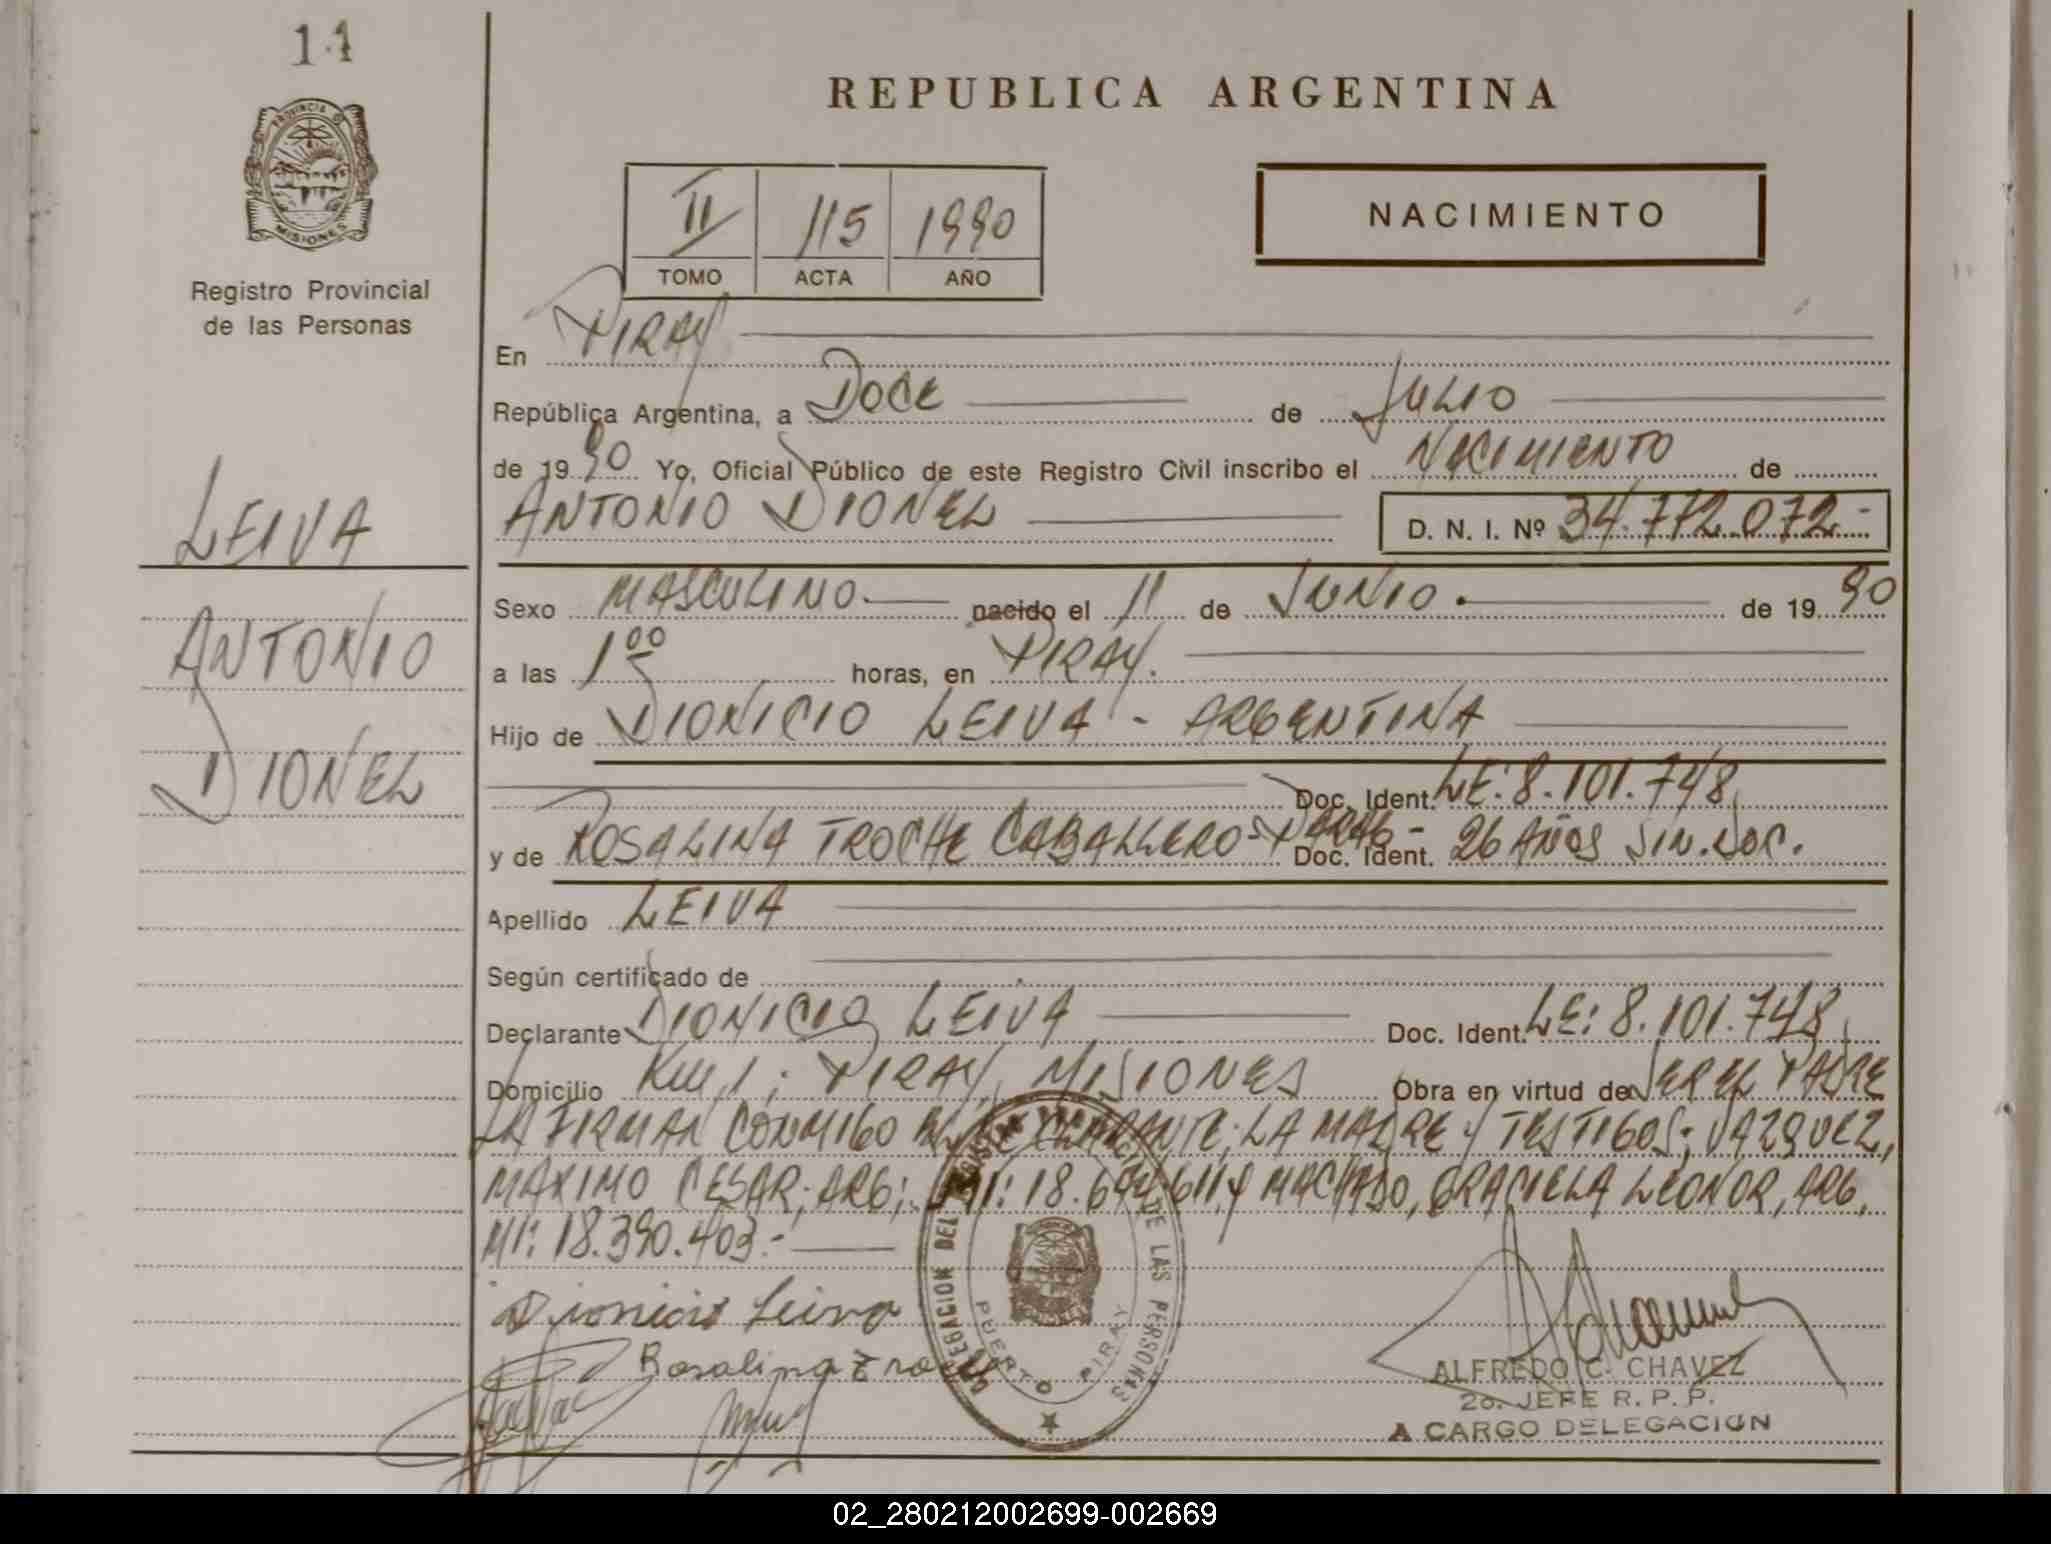 14
PROVINCIA
MISIONES
Registro Provincial
de las Personas
REPUBLICA ARGENTINA
II 115 1990
TOMO ACTA AÑO
NACIMIENTO
En PIRAY
República Argentina, a DOCE de JULIO
de 1990 Yo, Oficial Público de este Registro Civil inscribo el NACIMIENTO de
ANTONIO DIONEL D. N. I. Nº 34.772.072.-
LEIVA
ANTONIO
DIONEL
Sexo MASCULINO.— nacido el 11 de JUNIO.— de 1990
a las 1 00 horas, en PIRAY.
Hijo de DIONICIO LEIVA - ARGENTINA
Doc. Ident. LE: 8.101.748
y de ROSALINA TROCHE CABALLERO - Doc. Ident. 26 AÑOS SIN. DOC.
Apellido LEIVA
Según certificado de
Declarante DIONICIO LEIVA Doc. Ident. LE: 8.101.748
Domicilio KM 1; PIRAY, MISIONES Obra en virtud de SER EL PADRE
LA FIRMAN CONMIGO EL DECLARANTE; LA MADRE Y TESTIGOS; VAZQUEZ,
MAXIMO CESAR; ARG; MI: 18. Y MACHADO, GRACIELA LEONOR, ARG,
MI: 18.390.403.-
Dionicio Leiva
Rosalina Troche
DELEGACION DEL REGISTRO PROVINCIAL DE LAS PERSONAS
PUERTO PIRAY
ALFREDO C. CHAVEZ
2o. JEFE R. P. P.
A CARGO DELEGACION
02_280212002699-002669